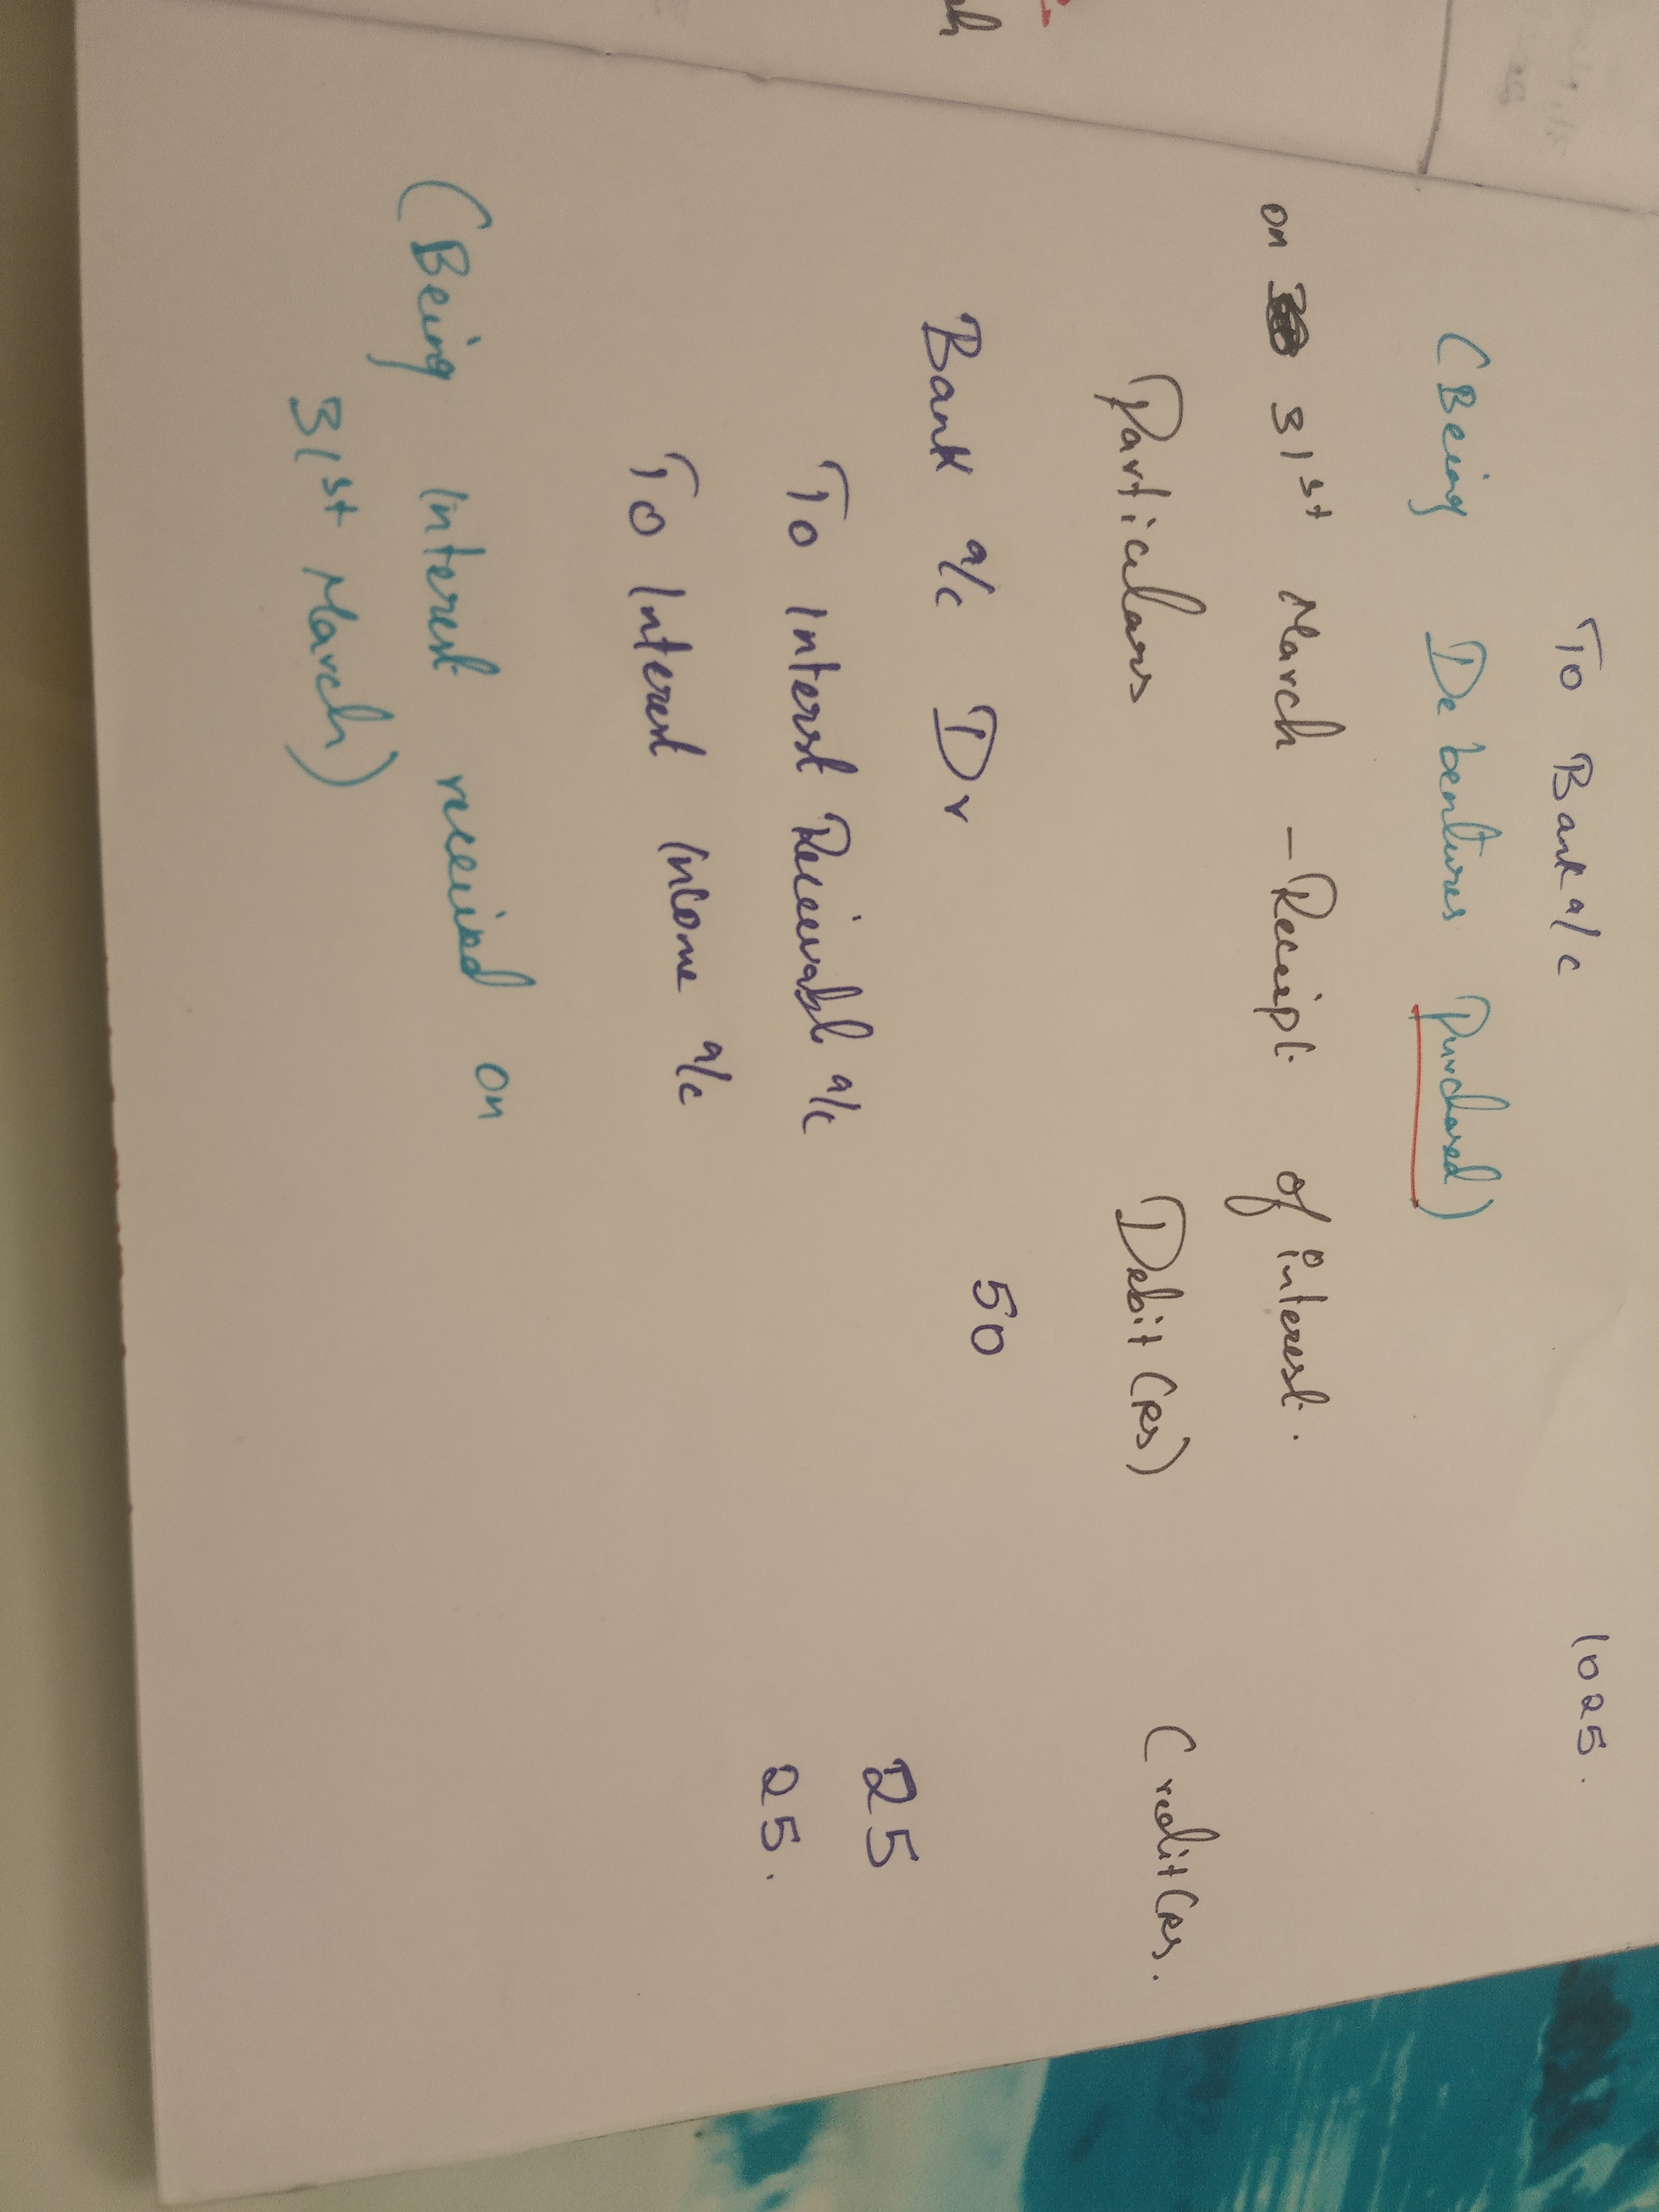 To Bank a/c 1025.
(Being Debentures Purchased)
on 31st March - Receipt of interest.
Particulars Debit (Rs) Credit (Rs.
Bank a/c Dr 50
To Interst Receivable a/c 25
To Interest Income a/c 25.
(Being Interest received on
31st March)